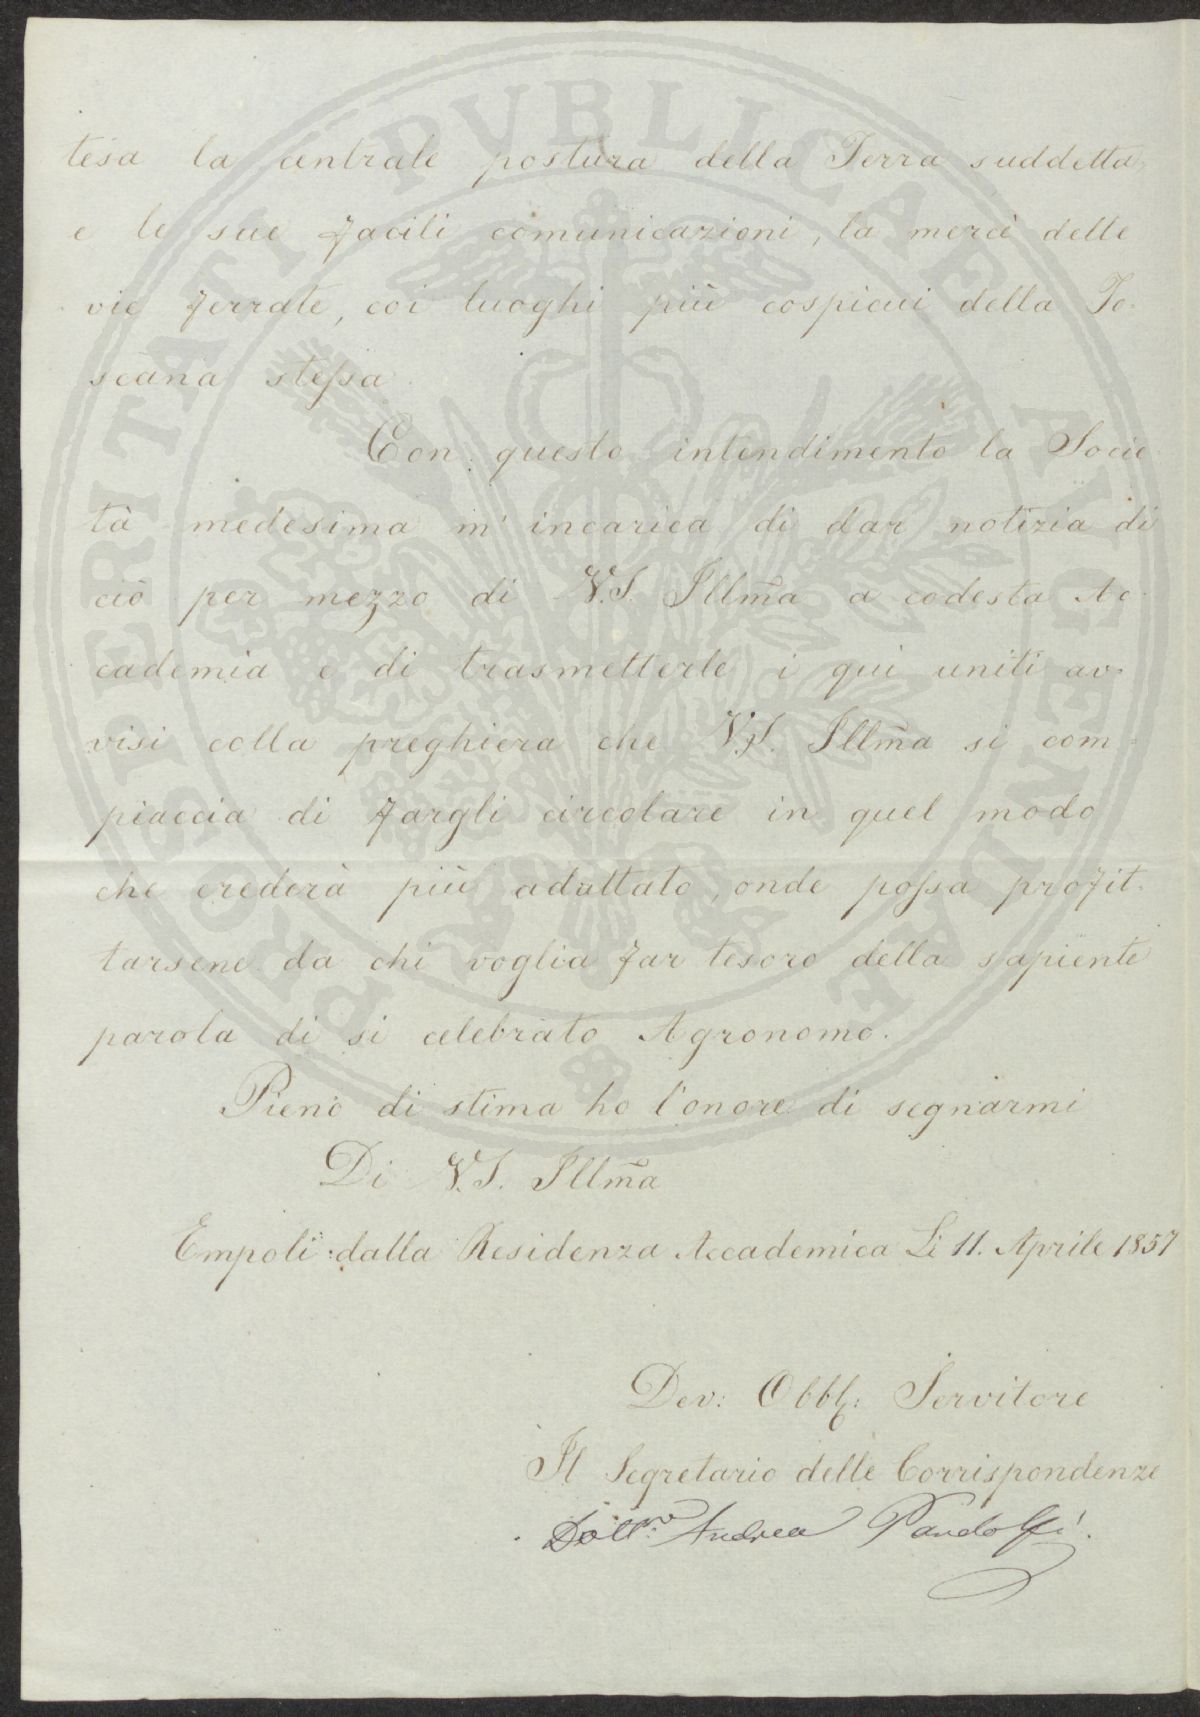 PROSPERITATI PVBLICAE AVGENDAE
tesa la centrale postura della Terra suddetta,
e le sue facili comunicazioni, la mercè delle
vie ferrate, coi luoghi più cospicui della To-
scana stessa.
Con questo intendimento la Socie-
tà medesima m'incarica di dar notizia di
ciò per mezzo di V.S. Illm̃a a codesta Ac-
cademia e di trasmetterle i qui uniti av-
visi colla preghiera che V.S. Illm̃a si com-
piaccia di fargli circolare in quel modo
che crederà più adattato, onde possa profit-
tarsene da chi voglia far tesoro della sapiente
parola di si celebrato Agronomo.
Pieno di stima ho l'onore di segnarmi
Di V.S. Illm̃a
Empoli dalla Residenza Accademica Li 11. Aprile 1857
Dev: Obbl: Servitore
Il Segretario delle Corrispondenze
Dott.re Andrea Pandolfi.